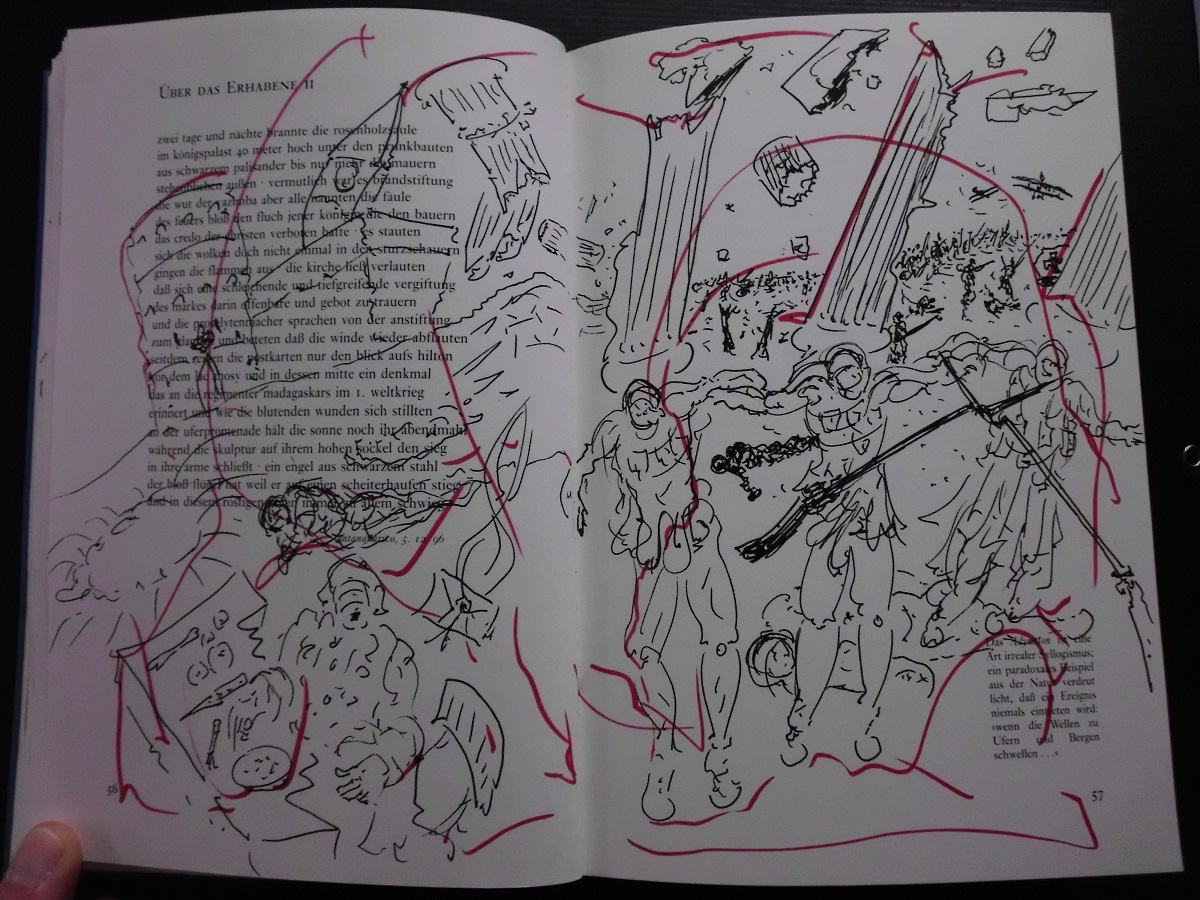 Über das Erhabene II
zwei tage und nächte brannte die rosenholzsäule
im königspalast 40 meter hoch unter den prunkbauten
aus schwarzem palisander bis nur mehr die mauern
stehenblieben außen · vermutlich war es brandstiftung
die wut der vazimba aber alle nannten die fäule
des feuers bloß den fluch jener königin die den bauern
das credo der christen verboten hatte · es stauten
sich die wolken doch nicht einmal in den sturzschauern
gingen die flammen aus · die kirche ließ verlauten
daß sich eine schleichende und tiefgreifende vergiftung
des markes darin offenbare und gebot zu trauern
und die proselytenmacher sprachen von der anstiftung
zum und beteten daß die winde wieder abflauten
seitdem zeigen die postkarten nur den blick aufs hilton
vor dem lac anosy und in dessen mitte ein denkmal
das an die regimenter madagaskars im 1. weltkrieg
erinnert und wie die blutenden wunden sich stillten
an der uferpromenade hält die sonne noch ihr abendmahl
während die skulptur auf ihrem hohen sockel den sieg
in ihre arme schließt · ein engel aus schwarzem stahl
der bloß flügel hat weil er auf einen scheiterhaufen stieg
und in diesem rostigen immer zu allem schwieg
5. 12. 96
56
Das Adynaton ist eine
Art irrealer Syllogismus,
ein paradoxales Beispiel
aus der Natur verdeut
licht, daß ein Ereignis
niemals eintreten wird:
»wenn die Wellen zu
Ufern und Bergen
schwellen . . .«
57